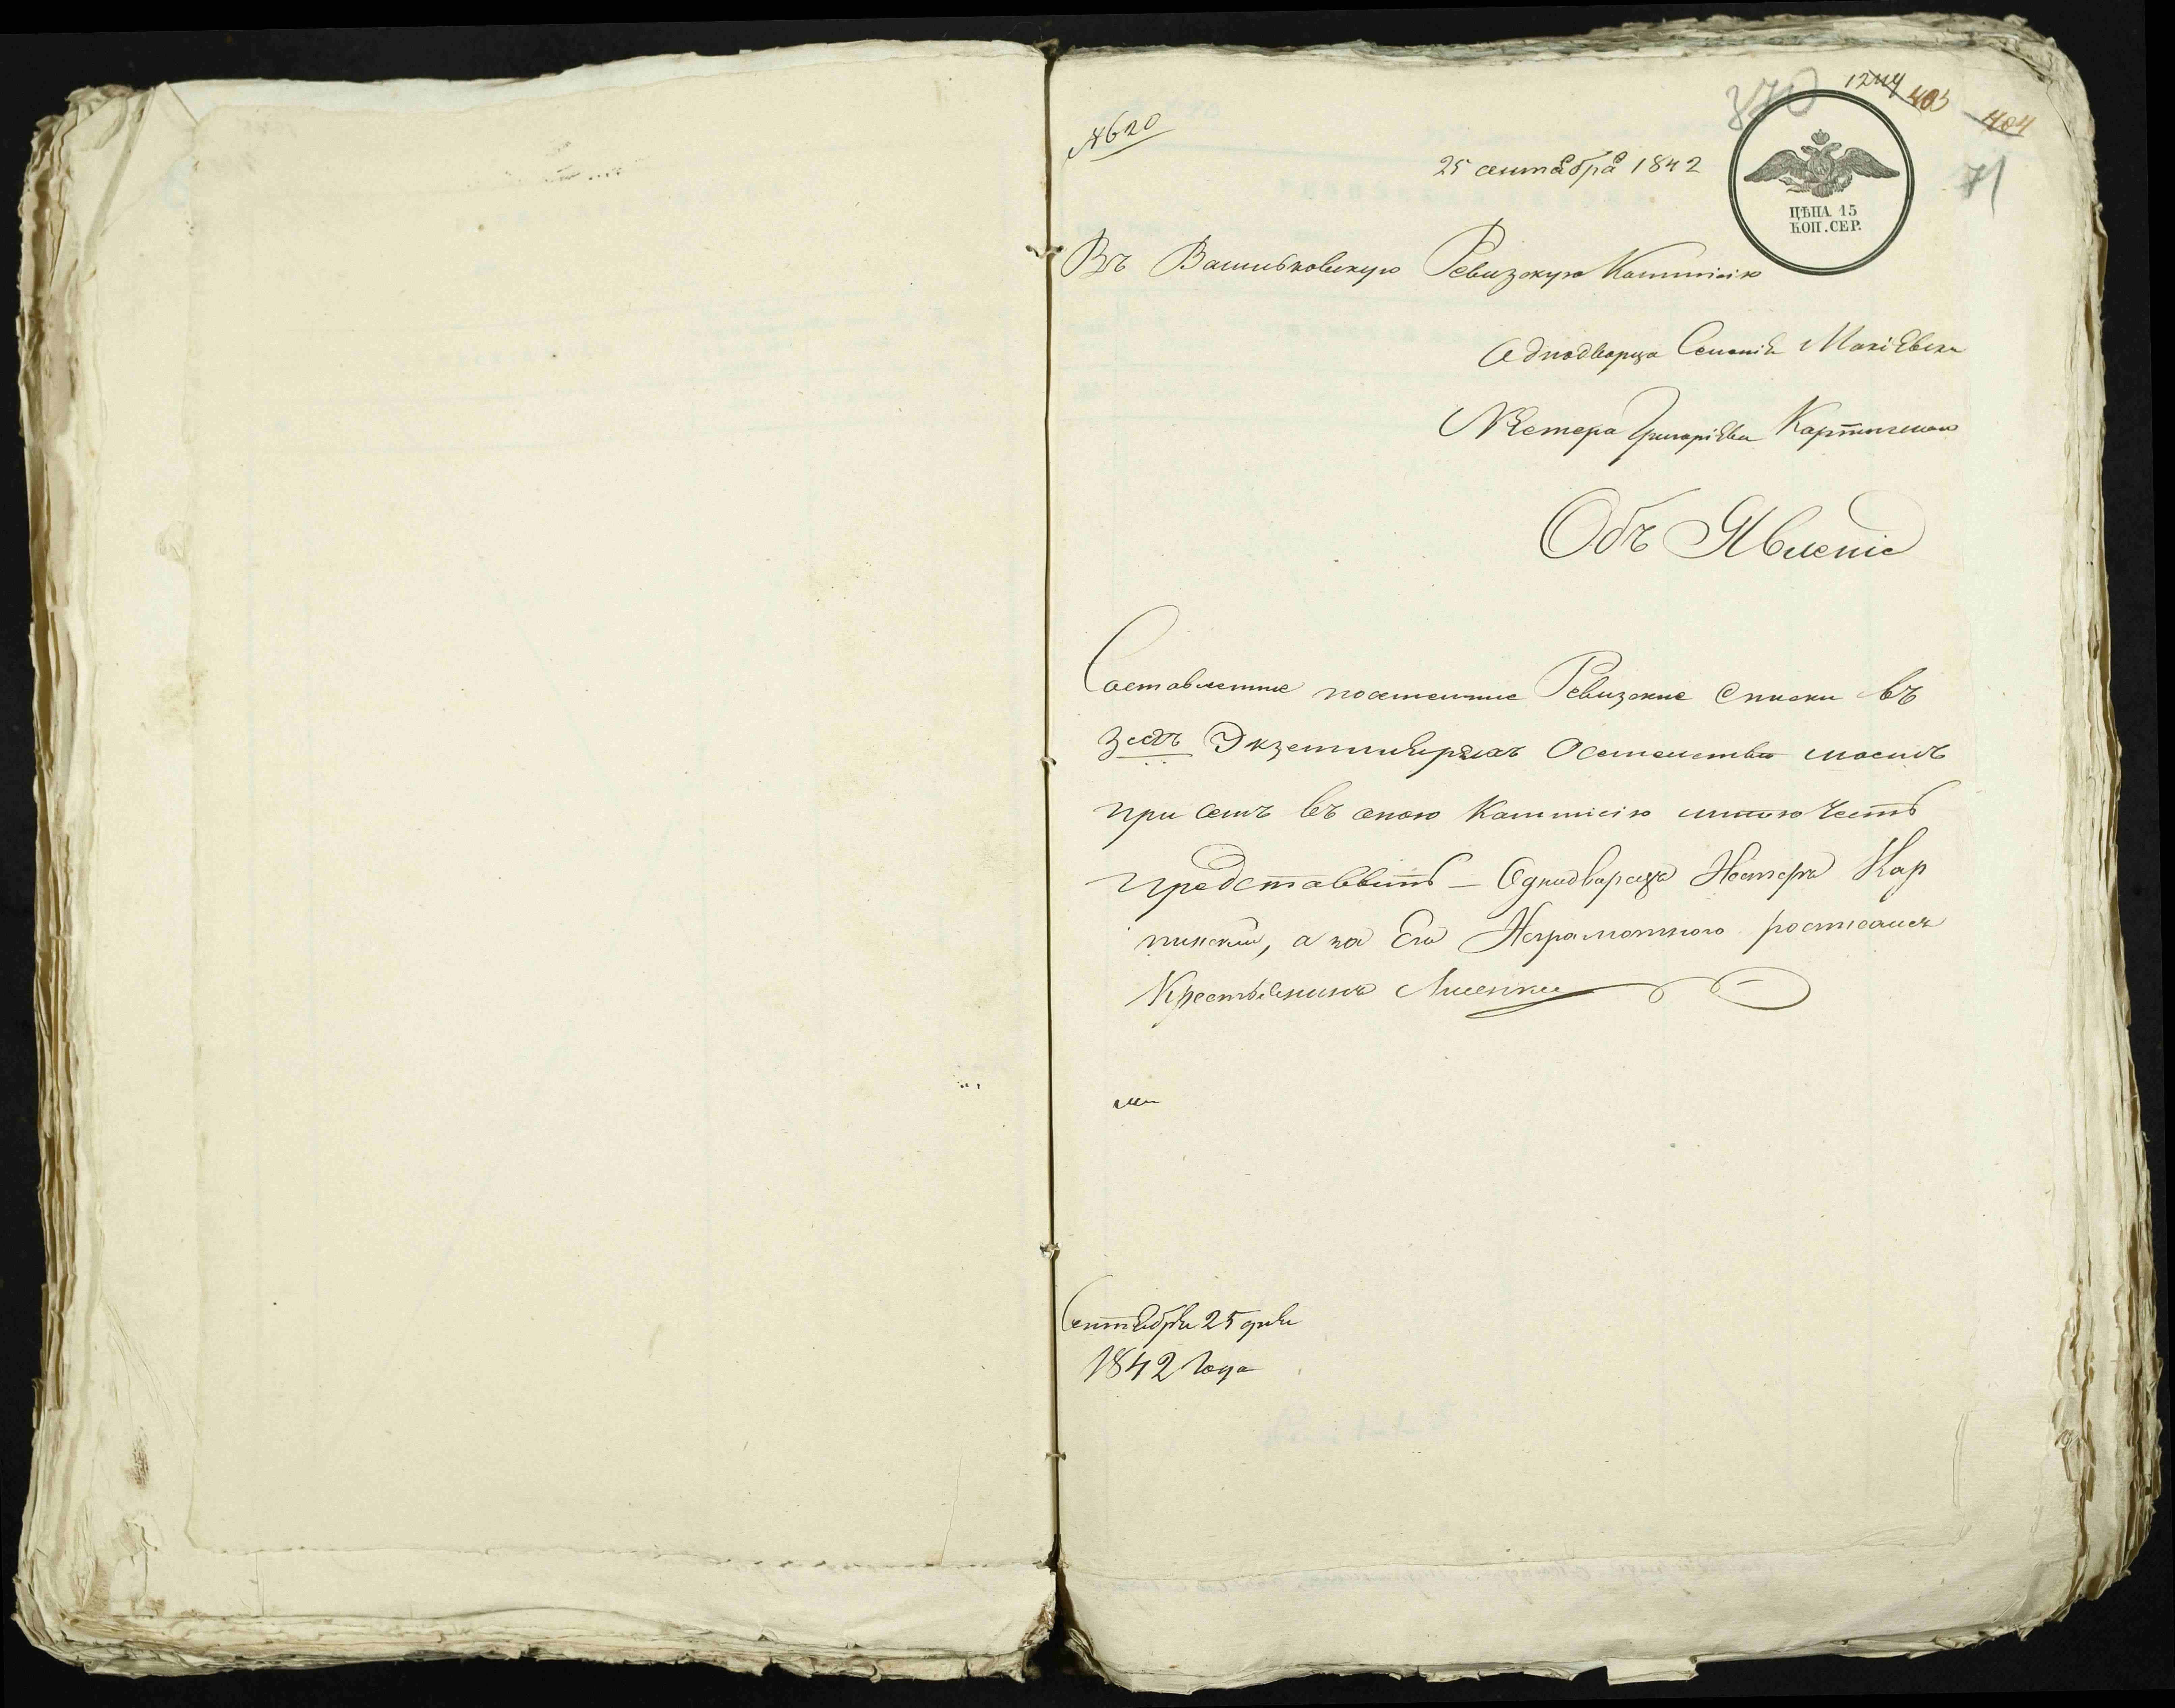 № 620
25 сентября 1842
370
1244
403
404
71
ЦѢНА 15
КОП. СЕР.
Въ Васильковскую Ревизскую Коммисію
Однодворца Селенія Макіевки
Нестера Григоріева Карпинскаго
Объ Явленіе
Составленние посемейние Ревизские Списки въ
3хъ Экземплярахъ О семействе моемъ
при семъ въ оною Коммисію имѣю честь
представить — Однодворецъ Нестеръ Кар
пинский, а за Его Неграмотного росписался
Крестьянинъ
Сентября 25 дня
1842 Года